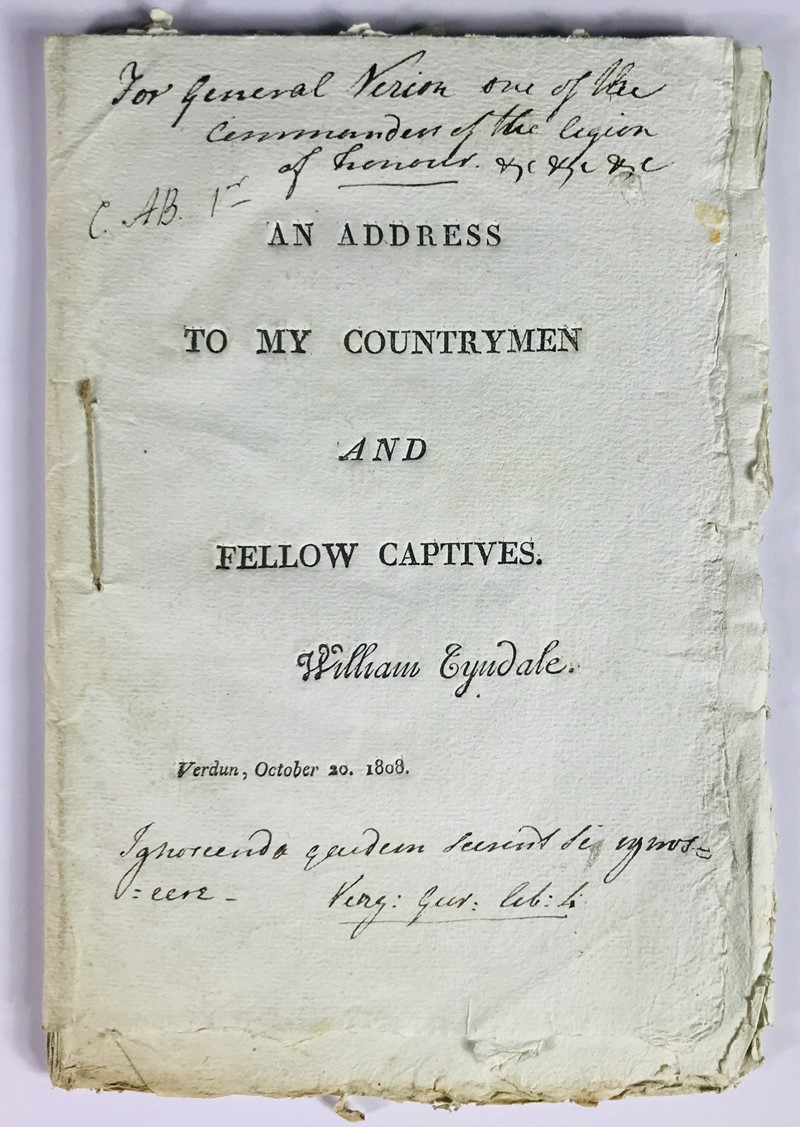 For General Virion one of the
Commanders of the legion
of honour. &c &c &c
C. AB. 1st
AN ADDRESS
TO MY COUNTRYMEN
AND
FELLOW CAPTIVES.
William Tyndale.
Verdun, October 20. 1808.
Ignoscenda quidem scirent si ignos=
=cere -
Virg: lib: 4: